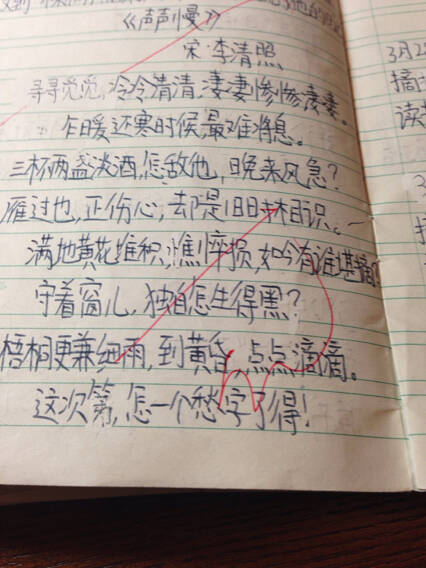 《声声慢》
宋·李清照
寻寻觅觅,冷冷清清,凄凄惨惨凄凄。
乍暖还寒时候,最难消息。
三杯两盏淡酒,怎敌他,晚来风急?
雁过也,正伤心,却是旧日相识。
满地黄花堆积,憔悴损,如今有谁堪摘?
守着窗儿,独自怎生得黑?
梧桐更兼细雨,到黄昏,点点滴滴。
这次第,怎一个愁字了得!
3月2
摘
读
3